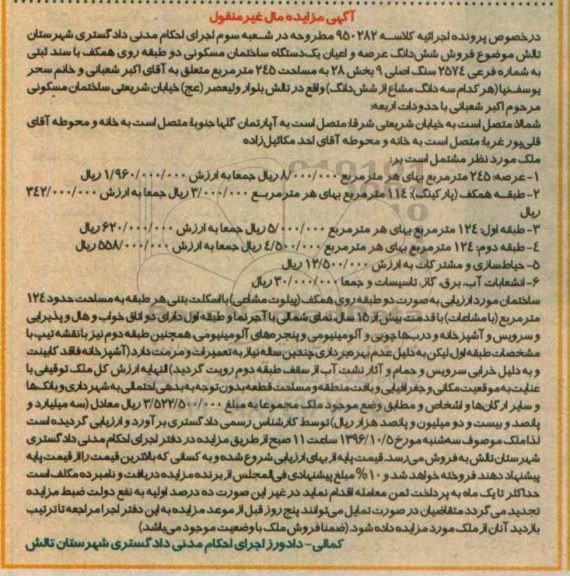 آگهی مزایده مال غیرمنقول
درخصوص پرونده اجرائیه کلاسه ۹۵۰۲۸۲ مطروحه در شعبه سوم اجرای احکام مدنی دادگستری شهرستان
تالش موضوع فروش شش‌دانگ عرصه و اعیان یک‌دستگاه ساختمان مسکونی دو طبقه روی همکف با سند ثبتی
به شماره فرعی ۲۵۷۴ سنگ اصلی ۹ بخش ۲۸ به مساحت ۲۴۵ مترمربع متعلق به آقای اکبر شعبانی و خانم سحر
یوسف‌نیا (هر کدام سه دانگ مشاع از شش‌دانگ) واقع در تالش بلوار ولیعصر (عج) خیابان شریعتی ساختمان مسکونی
مرحوم اکبر شعبانی با حدودات اربعه:
شمالا: متصل است به خیابان شریعتی شرقا: متصل است به آپارتمان گلها جنوبا: متصل است به خانه و محوطه آقای
قلی‌پور غربا: متصل است به خانه و محوطه آقای احد مکائیل‌زاده
ملک مورد نظر مشتمل است بر:
۱- عرصه: ۲۴۵ مترمربع بهای هر مترمربع ۸/۰۰۰/۰۰۰ ریال جمعا به ارزش ۱/۹۶۰/۰۰۰/۰۰۰ ریال
۲- طبقه همکف (پارکینگ): ۱۱۴ مترمربع بهای هر مترمربع ۳/۰۰۰/۰۰۰ ریال جمعا به ارزش ۳۴۲/۰۰۰/۰۰۰
ریال
۳- طبقه اول: ۱۲۴ مترمربع بهای هر مترمربع ۵/۰۰۰/۰۰۰ ریال جمعا به ارزش ۶۲۰/۰۰۰/۰۰۰ ریال
۴- طبقه دوم: ۱۲۴ مترمربع بهای هر مترمربع ۴/۵۰۰/۰۰۰ ریال جمعا به ارزش ۵۵۸/۰۰۰/۰۰۰ ریال
۵- حیاط‌سازی و مشترکات به ارزش ۱۲/۵۰۰/۰۰۰ ریال
۶- انشعابات آب، برق، گاز، تاسیسات و جمعا ۳۰/۰۰۰/۰۰۰ ریال
ساختمان مورد ارزیابی به صورت دو طبقه روی همکف (پیلوت مشاعی) با اسکلت بتنی هر طبقه به مساحت حدود ۱۲۴
مترمربع (با مشاعات) با قدمت بیش از ۱۵ سال، نمای شمالی با آجرنما و طبقه اول دارای دو اتاق خواب و هال و پذیرایی
و سرویس و آشپزخانه و درب‌ها چوبی و آلومینیومی و پنجره‌های آلومینیومی، همچنین طبقه دوم نیز با نقشه تیپ با
مشخصات طبقه اول لیکن به دلیل عدم بهره‌برداری چندین ساله نیاز به تعمیرات و مرمت دارد (آشپزخانه فاقد کابینت
و به دلیل خرابی سرویس و حمام و آثار نشت آب از سقف طبقه دوم رویت گردید) النهایه ارزش کل ملک توقیفی با
عنایت به موقعیت مکانی و جغرافیایی و بافت منطقه و مساحت قطعه بدون توجه به بدهی احتمالی به شهرداری و بانک‌ها
و سایر ارگان‌ها و اشخاص و مطابق وضع موجود ملک مجموعا به مبلغ ۳/۵۲۲/۵۰۰/۰۰۰ ریال معادل (سه میلیارد و
پانصد و بیست و دو میلیون و پانصد هزار ریال) توسط کارشناس رسمی دادگستری برآورد و ارزیابی گردیده است
لذا ملک موصوف سه‌شنبه مورخ ۱۳۹۶/۱۰/۵ ساعت ۱۱ صبح از طریق مزایده در دفتر اجرای احکام مدنی دادگستری
شهرستان تالش به فروش می‌رسد. قیمت پایه از بهای ارزیابی شروع شده و به کسانی که بالاترین قیمت را از قیمت پایه
پیشنهاد دهند. فروخته خواهد شد و ۱۰٪ مبلغ پیشنهادی فی‌المجلس از برنده مزایده دریافت و نامبرده مکلف است
حداکثر تا یک ماه به پرداخت ثمن معامله اقدام نماید در غیر این صورت ده درصد اولیه به نفع دولت ضبط مزایده
تجدید می گردد متقاضیان در صورت تمایل می‌توانند پنج روز قبل از موعد مزایده به این دفتر اجرا مراجعه تا ترتیب
بازدید آنان از ملک مورد مزایده داده شود. (ضمنا فروش ملک با وضعیت موجود می‌باشد)
کمالی - دادورز اجرای احکام مدنی دادگستری شهرستان تالش